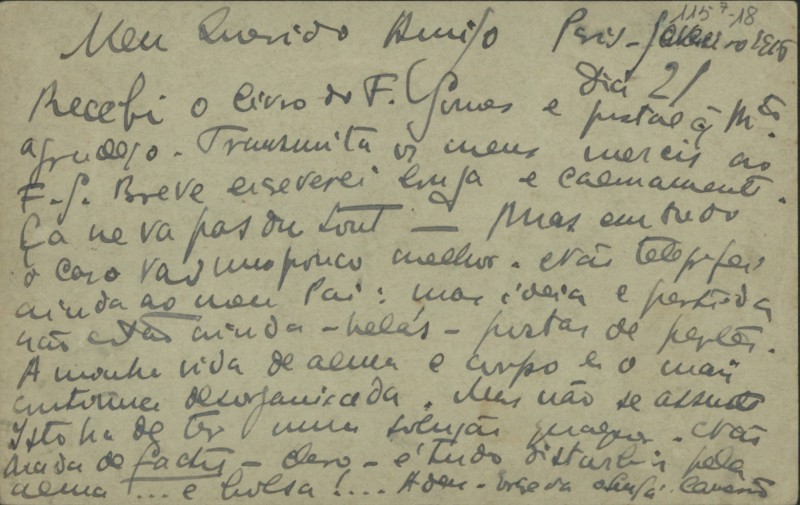 115⁷-18
Meu Querido Amigo Paris - Janeiro 1916
Dia 21
Recebi o livro do F. Gomes e postal q mto
agradeço. Transmita os meus mercis ao
F. G. Breve escreverei longa e calmamente.
Ça ne va pas du tout — Mas em tudo
o caso vai um pouco melhor. Não telegrafei
ainda ao meu Pai: mas ideia e partida
não estão ainda - helás - postas de
A minha vida de alma e corpo é o mais
desorganisada. Mas não se assuste
Isto ha de ter uma solução qualquer. Não
nada de factos - claro - é tudo disturbio pela
alma... e bolsa!... Adeus - escreva